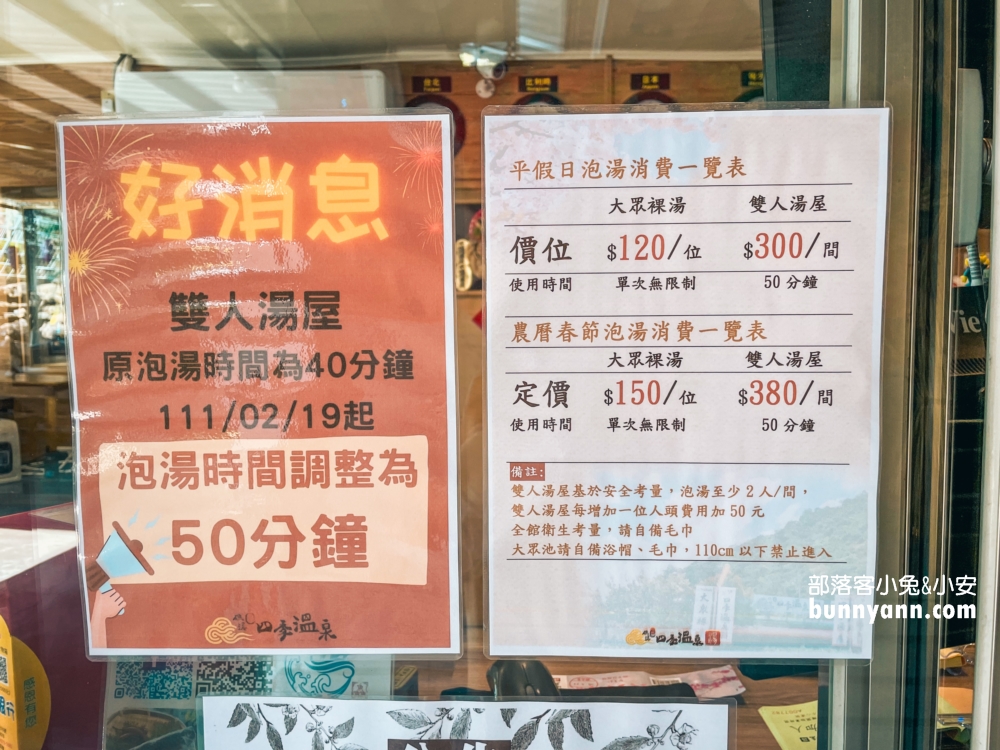 好消息
雙人湯屋
原泡湯時間為40分鐘
111/02/19起
泡湯時間調整為
50分鐘
四季溫泉
平假日泡湯消費一覽表
大眾裸湯 雙人湯屋
價位 $120/位 $300/間
使用時間 單次無限制 50分鐘
農曆春節泡湯消費一覽表
大眾裸湯 雙人湯屋
定價 $150/位 $380/間
使用時間 單次無限制 50分鐘
備註:
雙人湯屋基於安全考量,泡湯至少2人/間,
雙人湯屋每增加一位人頭費用加50元
全館衛生考量,請自備毛巾
大眾池請自備浴帽、毛巾,110cm以下禁止進入
四季溫泉
部落客小兔&小安
bunnyann.com